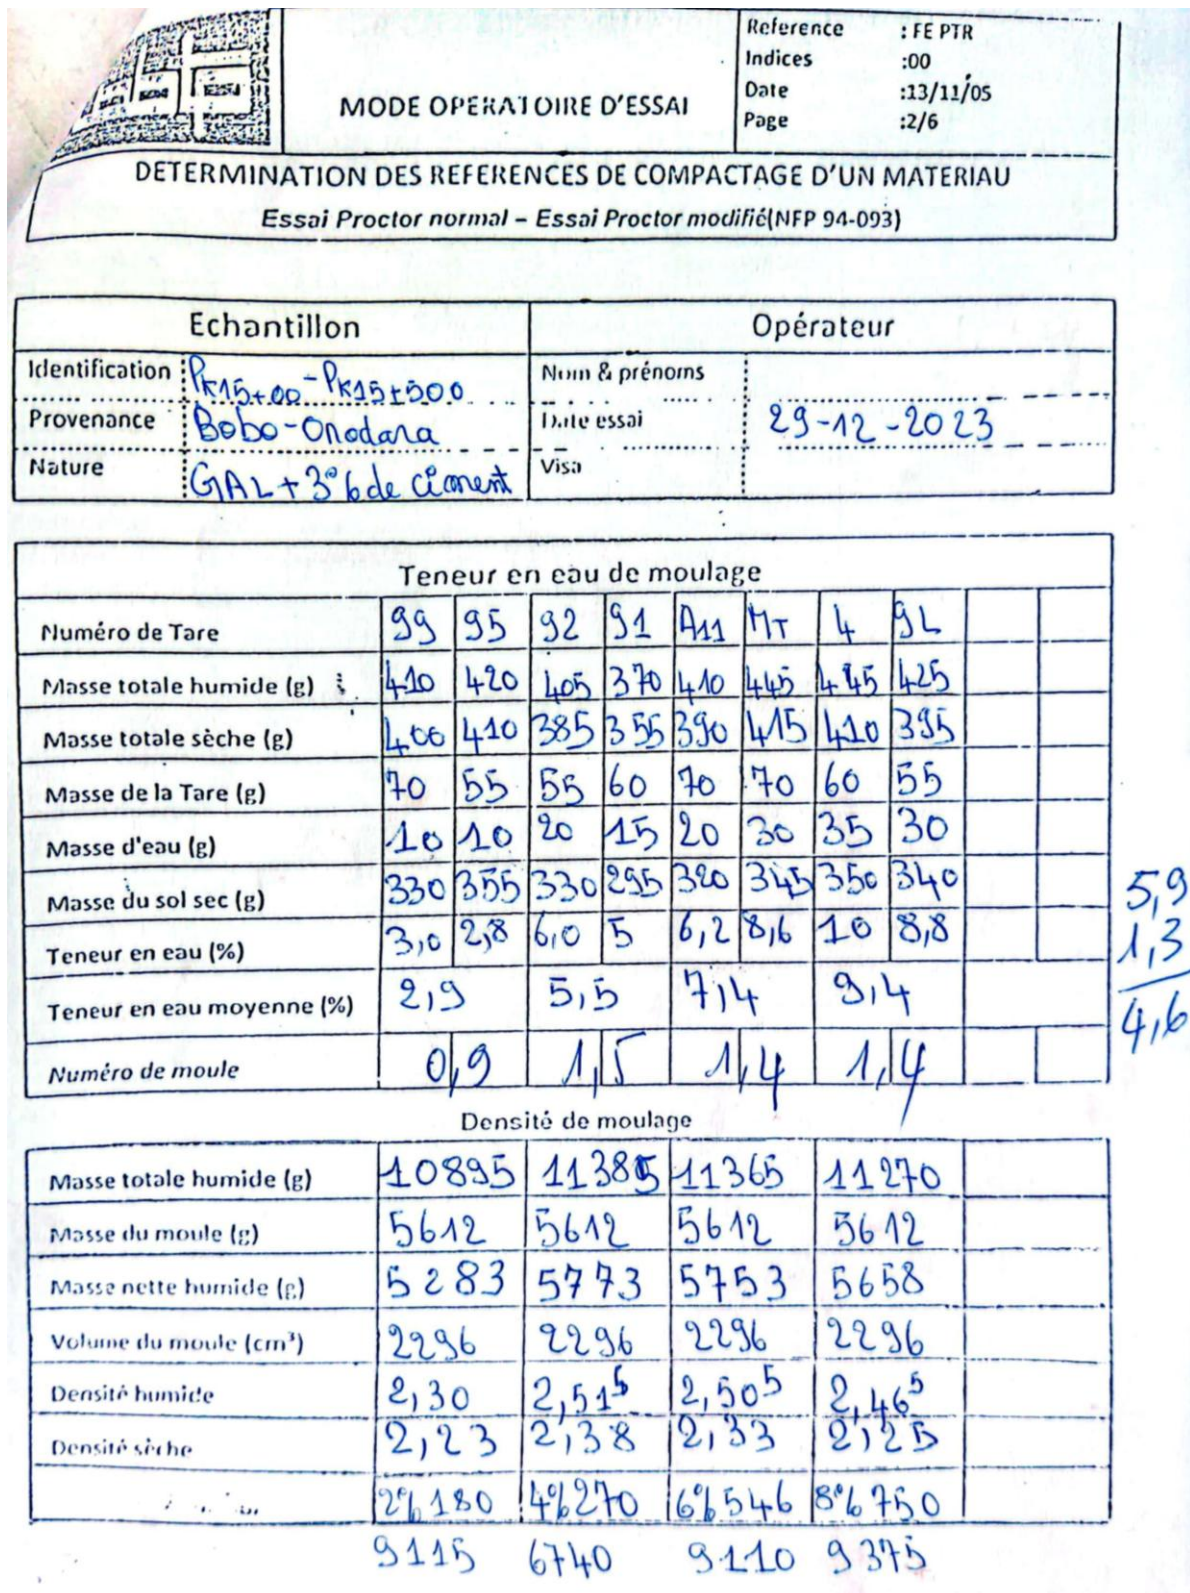 Reference : FE PTR
Indices :00
Date :13/11/05
Page :2/6
MODE OPERATOIRE D'ESSAI
DETERMINATION DES REFERENCES DE COMPACTAGE D'UN MATERIAU
Essai Proctor normal – Essai Proctor modifié(NFP 94-093)
Echantillon Opérateur
Identification PK15+00-PK15+500 Nom & prénoms
Provenance Bobo-Orodara Date essai 29-12-2023
Nature GAL+3% de ciment Visa
Teneur en eau de moulage
Numéro de Tare 99 95 92 91 A11 MT 4 9L
Masse totale humide (g) 410 420 405 370 410 445 445 425
Masse totale sèche (g) 400 410 385 355 390 415 410 395
Masse de la Tare (g) 70 55 55 60 70 70 60 55
Masse d'eau (g) 10 10 20 15 20 30 35 30
Masse du sol sec (g) 330 355 330 295 320 345 350 340 5,9
Teneur en eau (%) 3,0 2,8 6,0 5 6,2 8,6 10 8,8 1,3
Teneur en eau moyenne (%) 2,9 5,5 7,4 9,4 4,6
Numéro de moule 0,9 1,5 1,4 1,4
Densité de moulage
Masse totale humide (g) 10895 11385 11365 11270
Masse du moule (g) 5612 5612 5612 5612
Masse nette humide (g) 5283 5773 5753 5658
Volume du moule (cm³) 2296 2296 2296 2296
Densité humide 2,30 2,515 2,505 2,465
Densité sèche 2,23 2,38 2,33 2,25
2% 180 4% 270 6% 546 8% 750
9115 6740 9110 9375